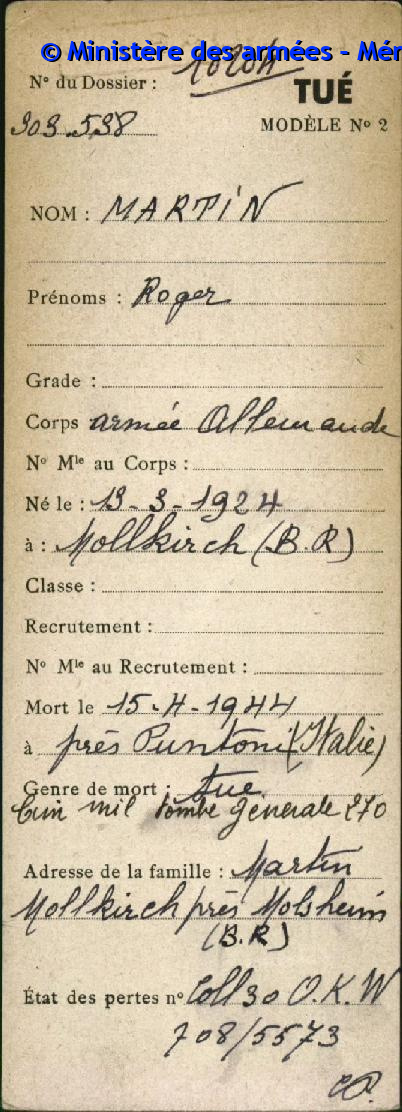 © Ministère des armées - Mér
N° du Dossier : 10204
TUÉ
303.538
MODÈLE N° 2
NOM : MARTIN
Prénoms : Roger
Grade :
Corps armée Allemande
N° Mle au Corps :
Né le : 13-3-1924
à : Mollkirch (B.R)
Classe :
Recrutement :
N° Mle au Recrutement :
Mort le 15-4-1944
à près Puntoni (Italie)
Genre de mort : tué
Cim mil tombe générale 270
Adresse de la famille : Martin
Mollkirch près Molsheim
(B.R)
État des pertes n° Coll 30 O.K.W
708/5573